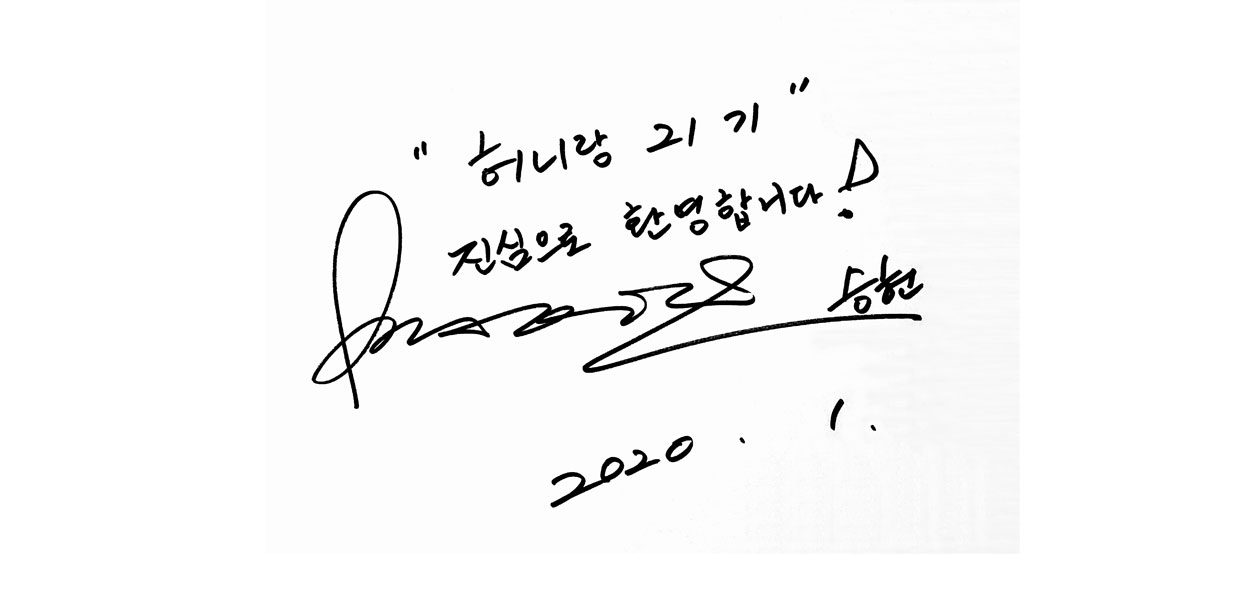 " 허니랑 괴기 "
진심으로 환영합니다!
승현
2020 . 1 .